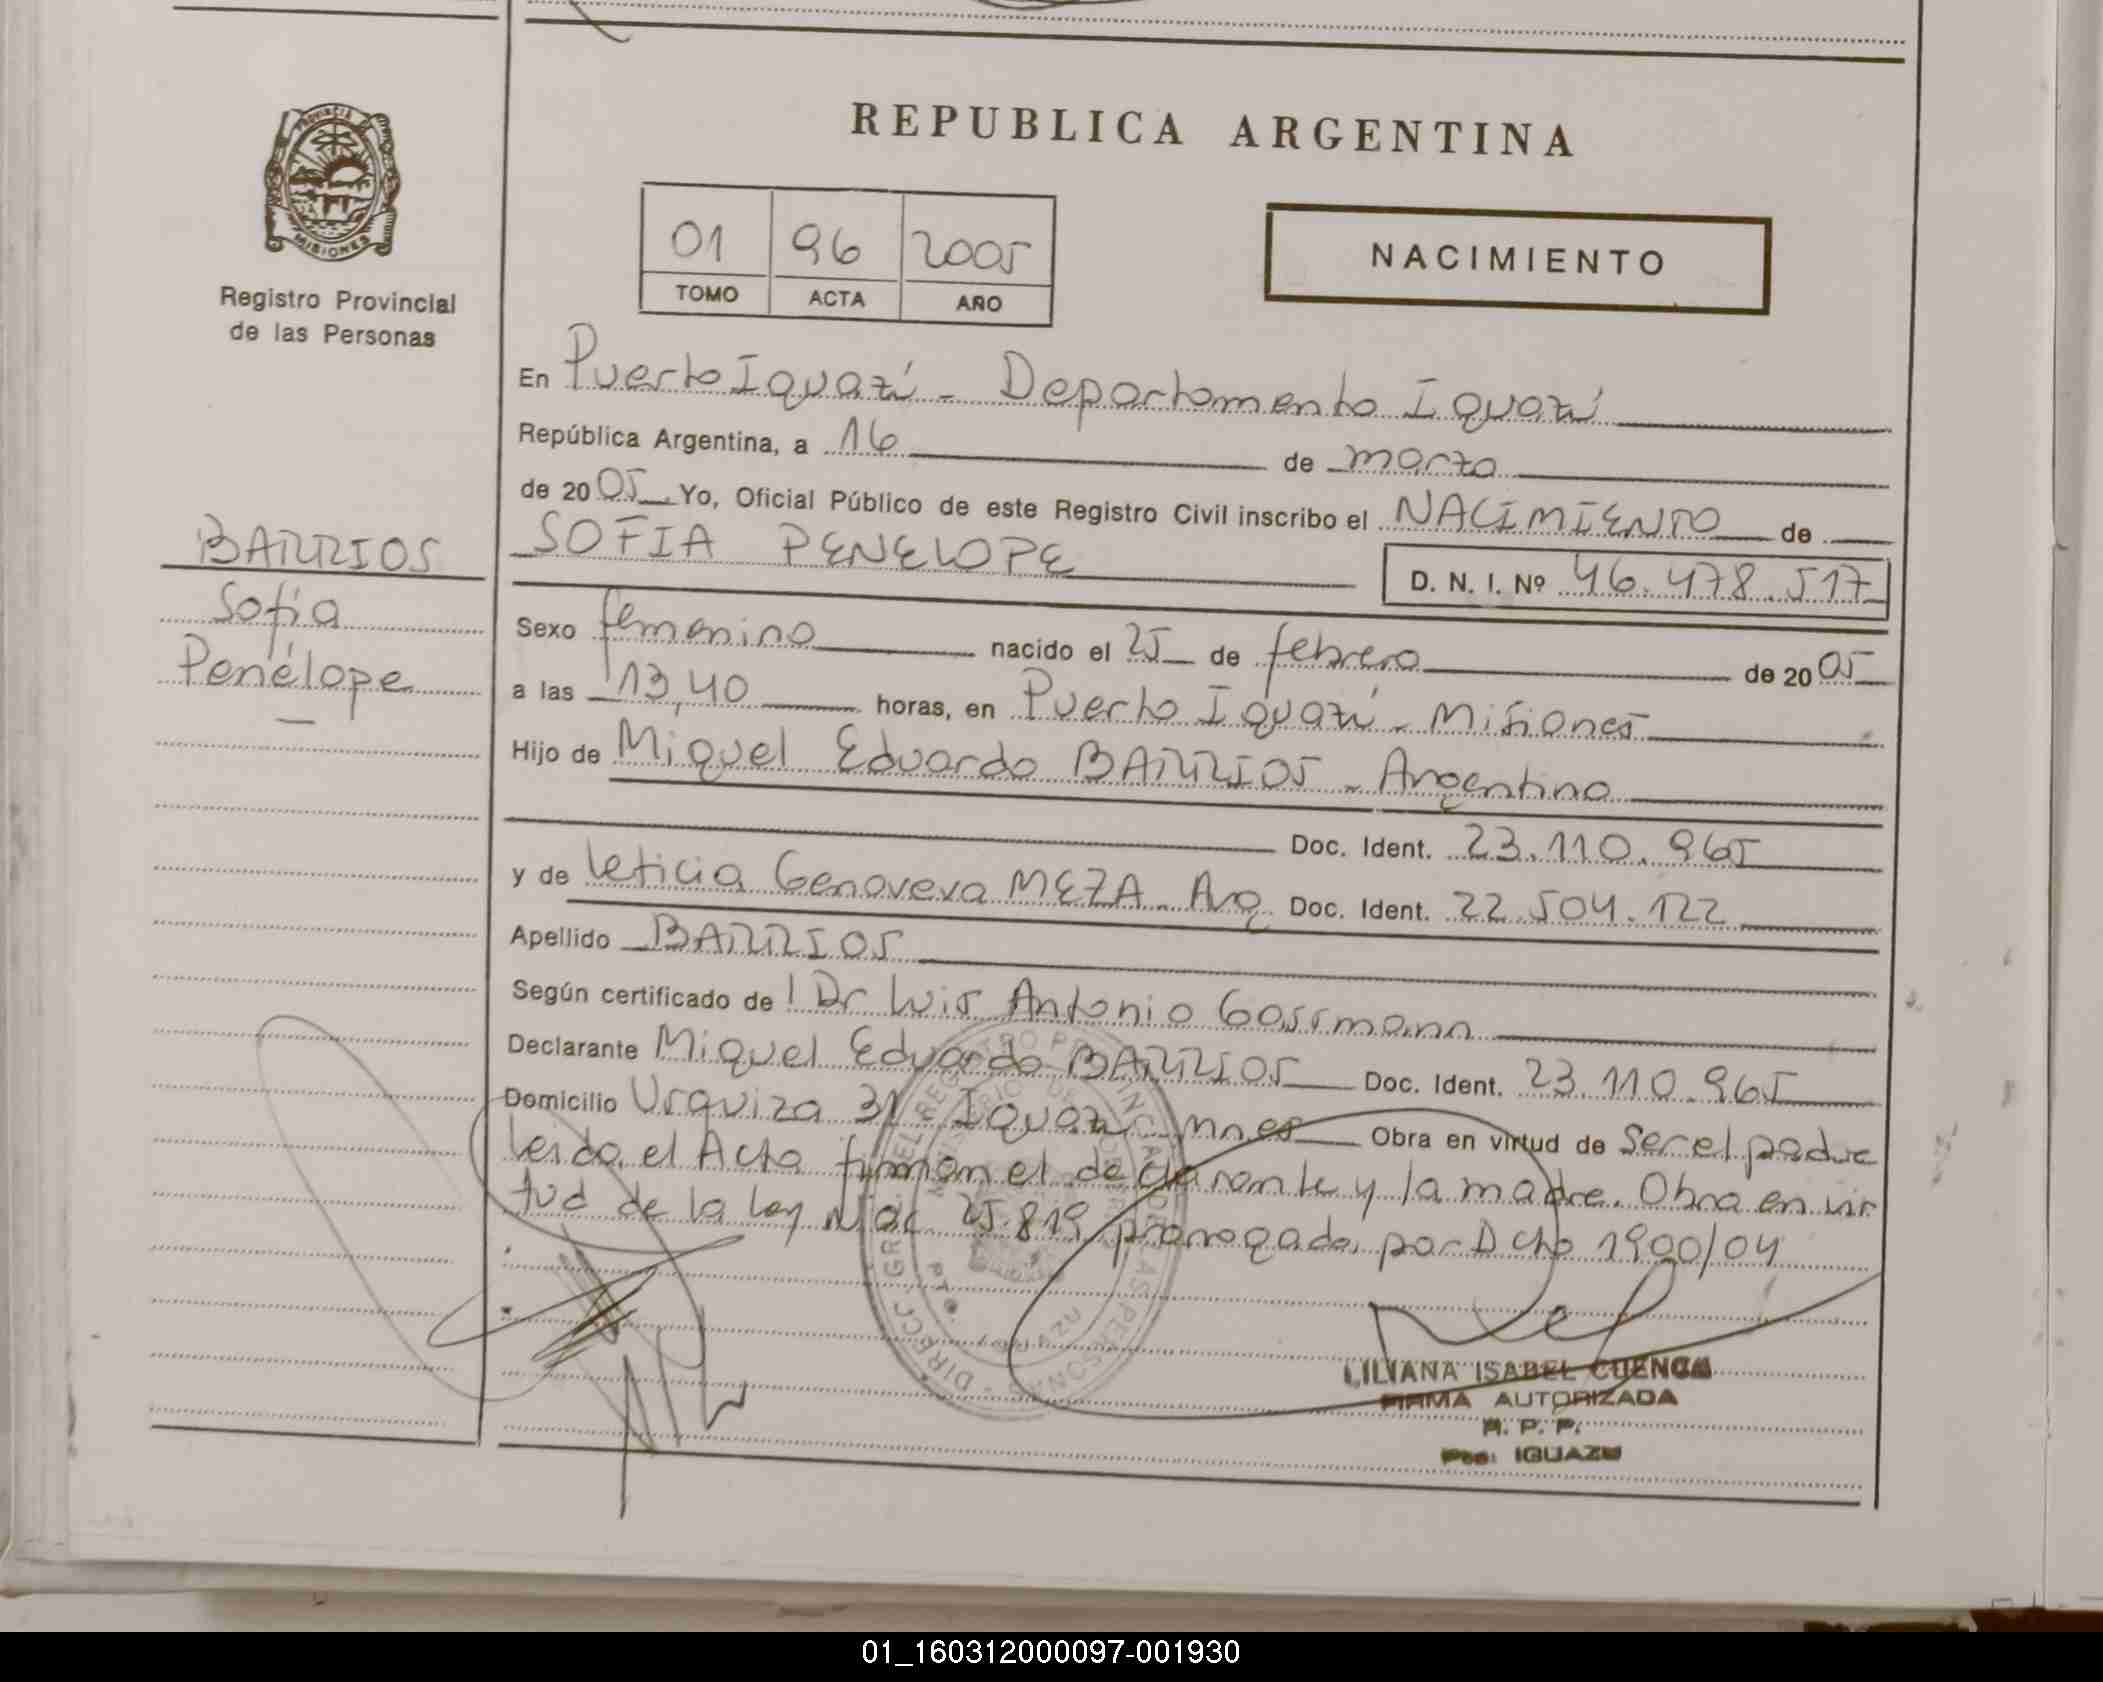 REPUBLICA ARGENTINA
PROVINCIA DE
MISIONES
Registro Provincial
de las Personas
01 96 2005
TOMO ACTA AÑO
NACIMIENTO
En Puerto Iguazú - Departamento Iguazú
República Argentina, a 16 de marzo
de 2005 Yo, Oficial Público de este Registro Civil inscribo el NACIMIENTO de
SOFIA PENELOPE
D. N. I. Nº 46.478.517
BARRIOS
Sofía
Penélope
Sexo femenino nacido el 25 de febrero de 2005
a las 13,40 horas, en Puerto Iguazú - Misiones
Hijo de Miguel Eduardo BARRIOS - Argentino
Doc. Ident. 23.110.965
y de Leticia Genoveva MEZA - Arg Doc. Ident. 22.504.122
Apellido BARRIOS
Según certificado de l Dr Luis Antonio Gassmann
Declarante Miguel Eduardo BARRIOS Doc. Ident. 23.110.965
Domicilio Urquiza 31 Iguazú Mnes Obra en virtud de ser el padre
leido el Acta firman el declarante y la madre. Obra en vir
tud de la Ley Nac 25.819 prorrogada por Dcto 1900/04
LILIANA ISABEL CUENCA
FIRMA AUTORIZADA
R. P. P.
Pto: IGUAZU
01_160312000097-001930